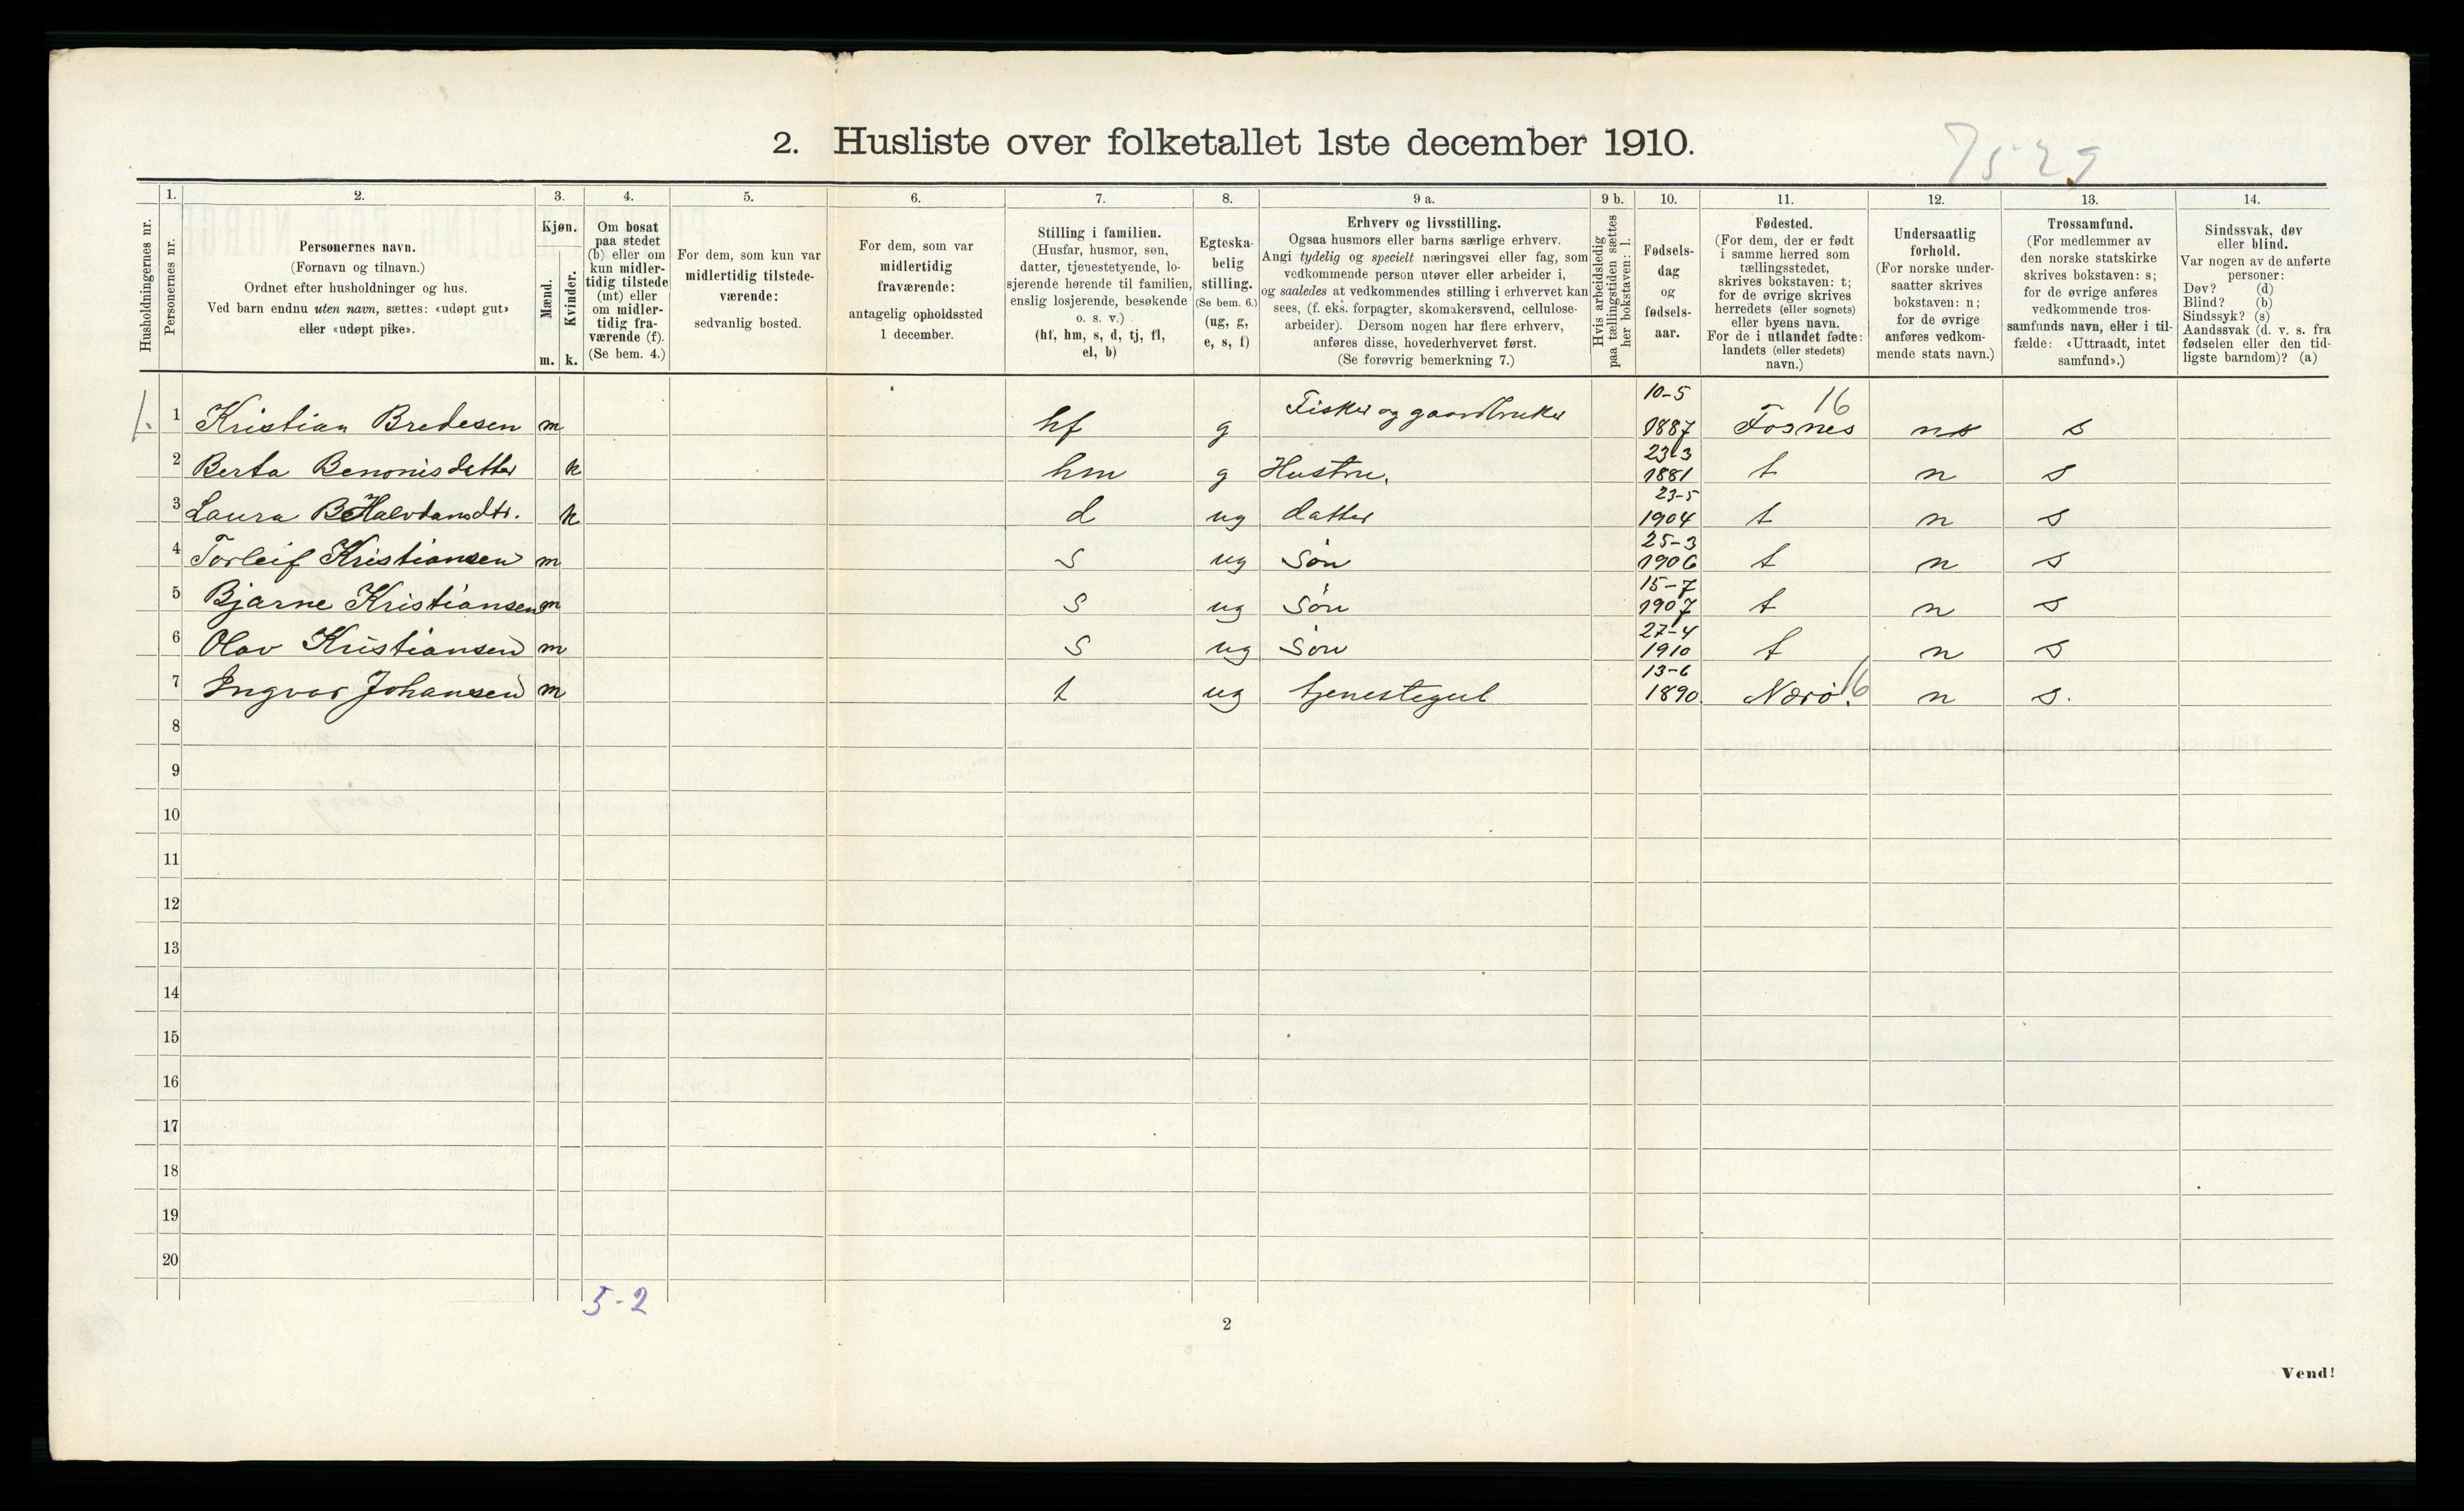 2. Husliste over folketallet 1ste december 1910.
7529
Husholdningernes nr.
1.
Personernes nr.
2.
Personernes navn.
(Fornavn og tilnavn.)
Ordnet efter husholdninger og hus.
Ved barn endnu uten navn, sættes: «udøpt gut»
eller «udøpt pike».
3.
Kjøn.
Mænd.
m.
Kvinder.
k.
4.
Om bosat
paa stedet
(b) eller om
kun midler-
tidig tilstede
(mt) eller
om midler-
tidig fra-
værende (f).
(Se bem. 4.)
5.
For dem, som kun var
midlertidig tilstede-
værende:
sedvanlig bosted.
6.
For dem, som var
midlertidig
fraværende:
antagelig opholdssted
1 december.
7.
Stilling i familien.
(Husfar, husmor, søn,
datter, tjenestetyende, lo-
sjerende hørende til familien,
enslig losjerende, besøkende
o. s. v.)
(hf, hm, s, d, tj, fl,
el, b)
8.
Egteska-
belig
stilling.
(Se bem. 6.)
(ug, g,
e, s, f)
9 a.
Erhverv og livsstilling.
Ogsaa husmors eller barns særlige erhverv.
Angi tydelig og specielt næringsvei eller fag, som
vedkommende person utøver eller arbeider i,
og saaledes at vedkommendes stilling i erhvervet kan
sees, (f. eks. forpagter, skomakersvend, cellulose-
arbeider). Dersom nogen har flere erhverv,
anføres disse, hovederhvervet først.
(Se forøvrig bemerkning 7.)
9 b.
Hvis arbeidsledig
paa tællingstiden sættes
her bokstaven: l.
10.
Fødsels-
dag
og
fødsels-
aar.
11.
Fødested.
(For dem, der er født
i samme herred som
tællingsstedet,
skrives bokstaven: t;
for de øvrige skrives
herredets (eller sognets)
eller byens navn.
For de i utlandet fødte:
landets (eller stedets)
navn.)
12.
Undersaatlig
forhold.
(For norske under-
saatter skrives
bokstaven: n;
for de øvrige
anføres vedkom-
mende stats navn.)
13.
Trossamfund.
(For medlemmer av
den norske statskirke
skrives bokstaven: s;
for de øvrige anføres
vedkommende tros-
samfunds navn, eller i til-
fælde: «Uttraadt, intet
samfund».)
14.
Sindssvak, døv
eller blind.
Var nogen av de anførte
personer:
Døv? (d)
Blind? (b)
Sindssyk? (s)
Aandssvak (d. v. s. fra
fødselen eller den tid-
ligste barndom)? (a)
1. 1 Kristian Bredesen m hf g Fisker og gaardbruker 10-5 1887 Fosnes 16 n s
2 Berta Benonisdatter k hm g Hustru. 23-3 1881 t n s
3 Laura B Halvdansdtr. k d ug datter 23-5 1904 t n s
4 Torleif Kristiansen m s ug Søn 25-3 1906 t n s
5 Bjarne Kristiansen m s ug Søn 15-7 1907 t n s
6 Olav Kristiansen m s ug Søn 27-4 1910 t n s
7 Ingvar Johansen m t ug tjenestegut 13-6 1890. Nærö. 16 n s.
8
9
10
11
12
13
14
15
16
17
18
19
20
5-2
2
Vend!